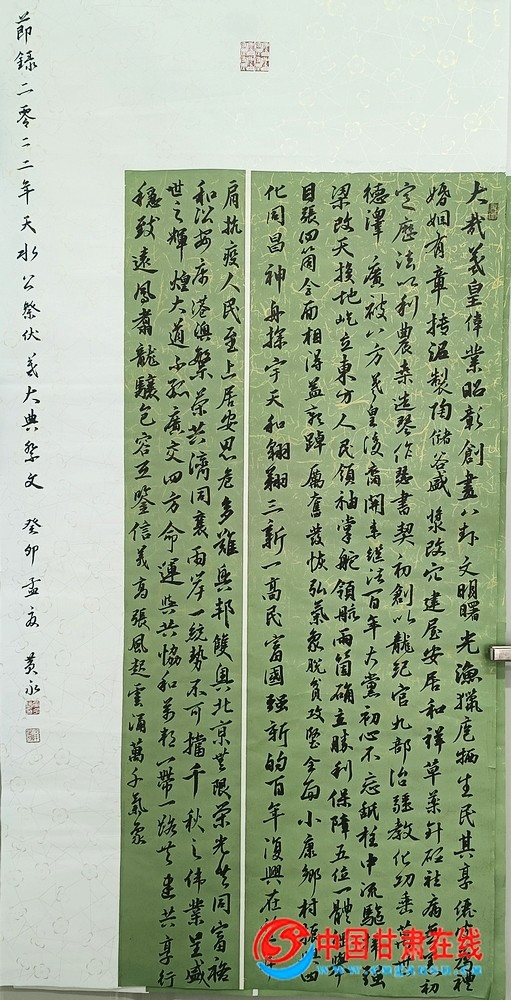 大哉羲皇偉業昭彰創畫八卦文明曙光漁獵庖犧生民其享儷皮為禮
婚姻有章摶泥製陶儲谷盛漿改穴建屋安居和祥草葉針砭祛病初
定歷法以利農桑造琴作瑟書契初創以龍紀官九部治疆教化功垂萬世
德澤廣被八方羲皇後裔開來繼往百年大黨初心不忘砥柱中流強
梁改天換地屹立東方人民領袖掌舵領航兩個確立勝利保障五位一體舉
目張四個全面相得益彰踔厲奮發恢弘氣象脫貧攻堅全面小康鄉村振興四
化同昌神舟探宇天和翱翔三新一高民富國強新的百年復興在
肩抗疫人民至上居安思危多難興邦雙奧北京無限榮光共同富裕
和治安康港澳繁榮共濟同襄兩岸一統勢不可擋千秋之偉業呈盛
世之輝煌大道不孤廣交四方命運與共協和萬邦一帶一路共建共享行
穩致遠鳳翥龍驤包容互鑒信義高張風起雲涌萬千氣象
節錄二零二二年天水公祭伏羲大典祭文 癸卯孟夏 黃永
中国甘肃在线